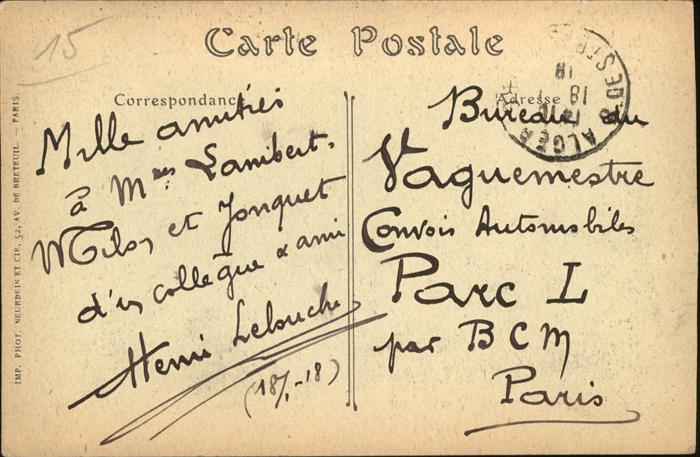 15
Carte Postale
Correspondance
Mille amitiés
à Mmes Lambert,
Milon et Jonquet
d'un collègue & ami
Henri Lebouche
(18/1-18)
Adresse
Bureau du
Vaguemestre
Convois Automobiles
Parc L
par BCM
Paris
ALGER
18
18
IMP. PHOT. NEURDEIN ET CIE, 52, AV. DE BRETEUIL. — PARIS.